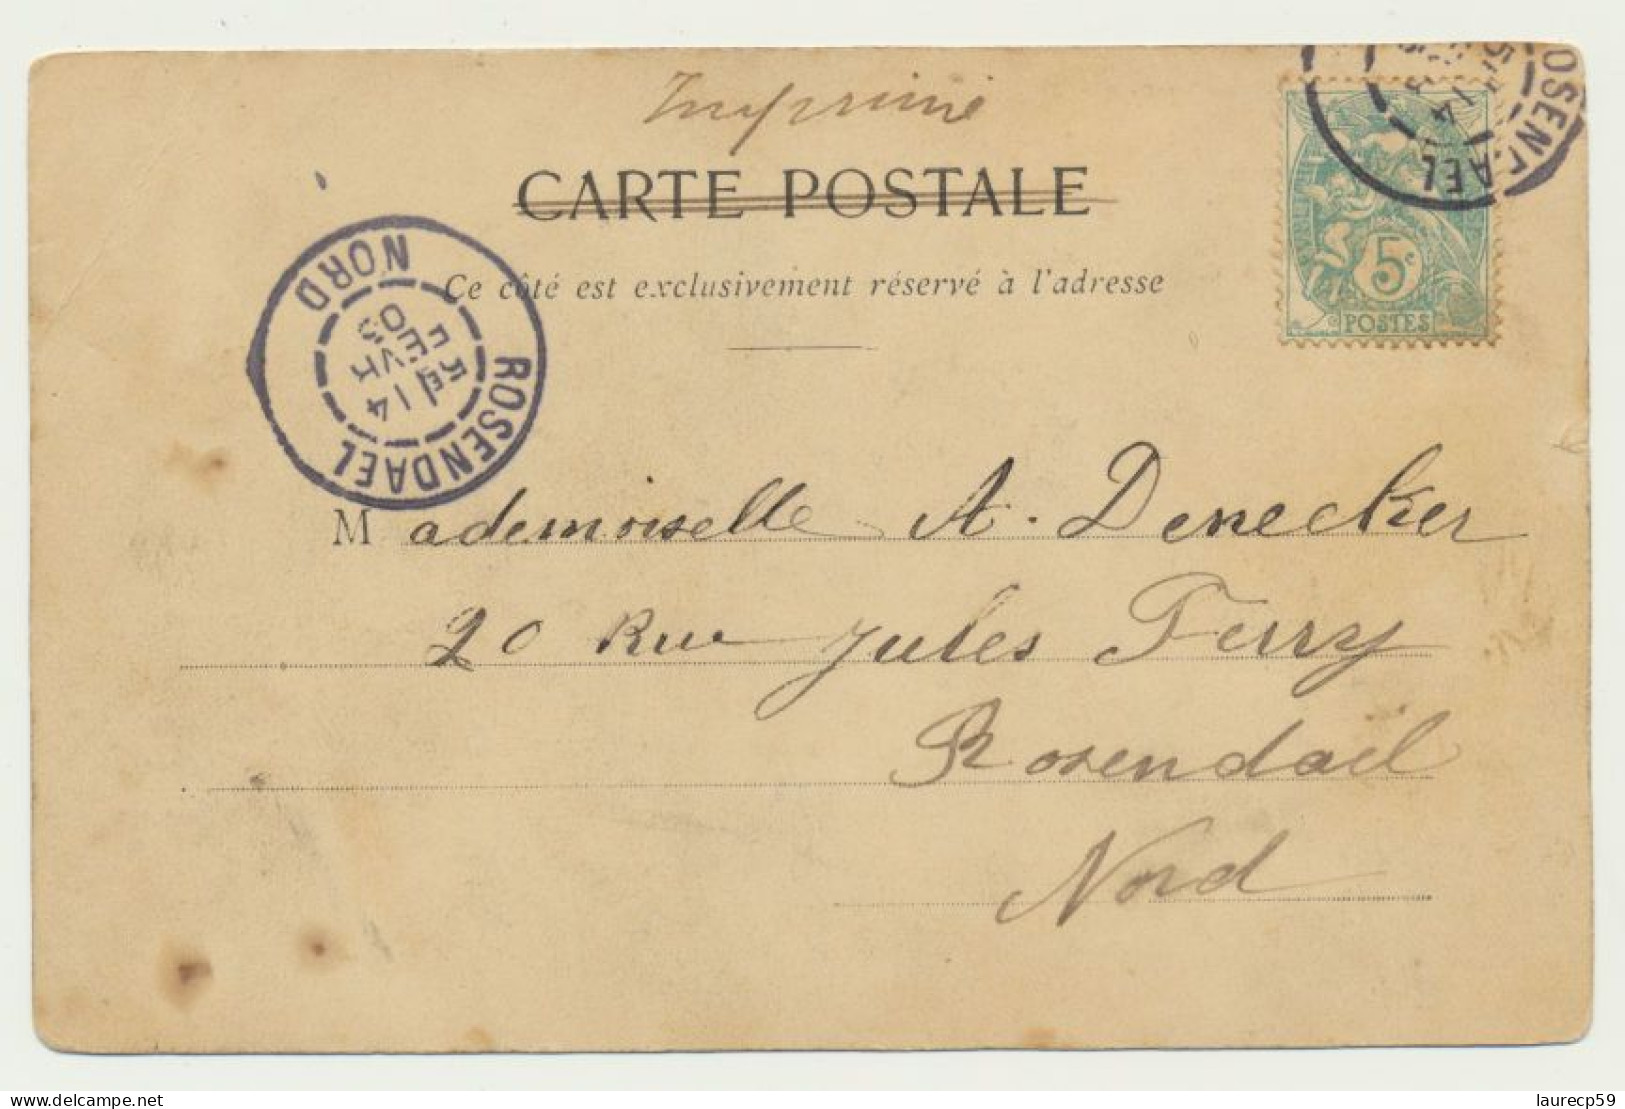 Imprimé
CARTE POSTALE
Ce côté est exclusivement réservé à l'adresse
ROSENDAEL
NORD
5E
14
FEVR
03
OSENDAEL
14
5
5c
POSTES
Mademoiselle A. Denecker
20 Rue Jules Ferry
Rosendaël
Nord
delcampe.net
laurecp59